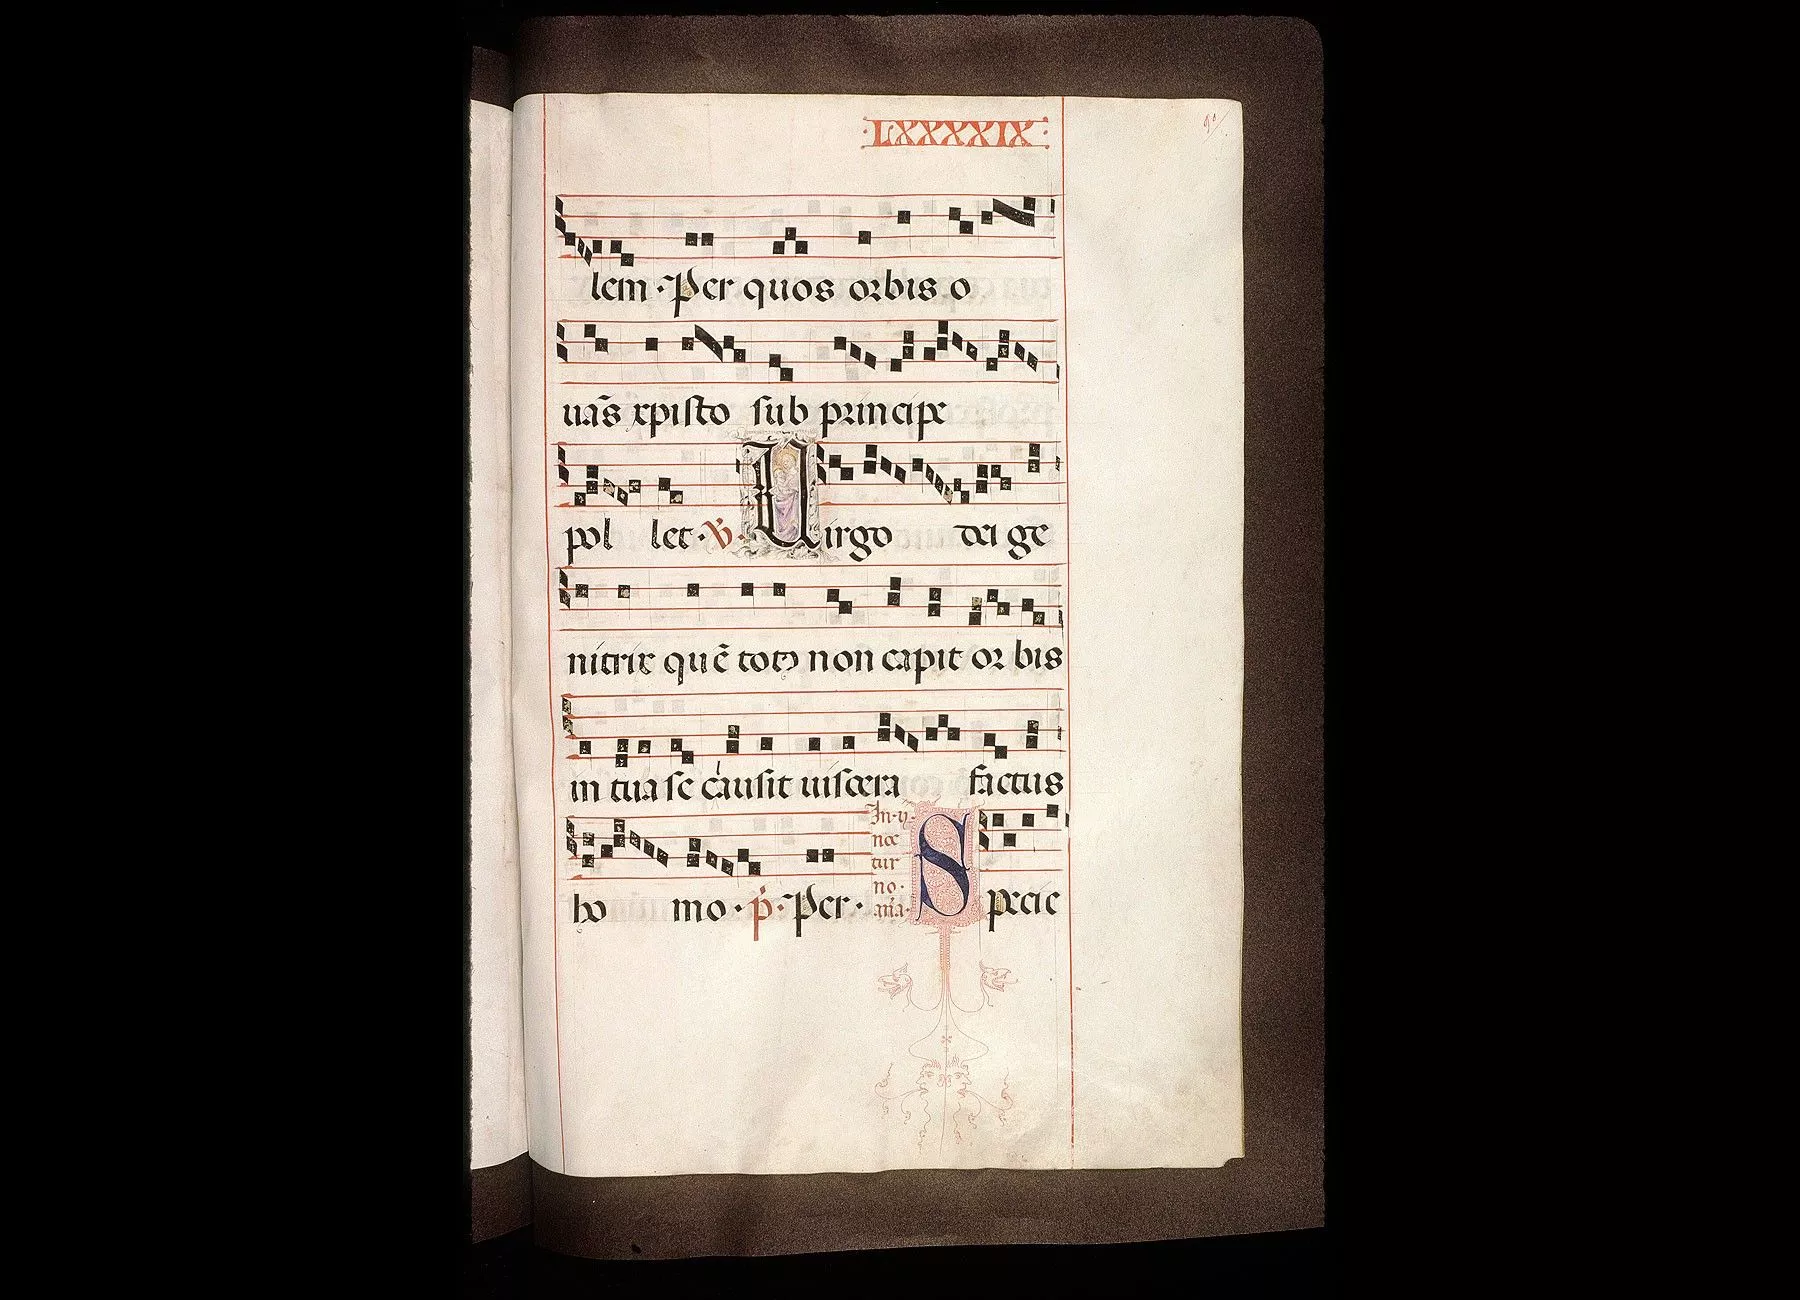 ·LXXXXIX·
lem · Per quos orbis o
uas̄ xpisto sub principe
pol let · V̄ · Uirgo dei ge
nitrix quē totꝰ non capit or bis
in tua se clausit uiscera factus
ho mo · p̄ · Per · Specie
In · ij ·
noc
tur
no ·
an̄a ·